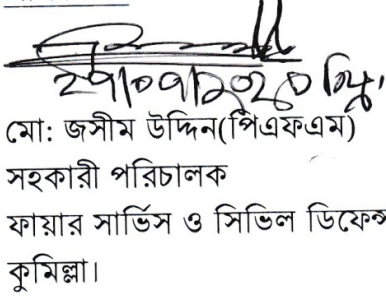 ২৭/০৭/২০২০ খ্রি.
মো: জসীম উদ্দিন(পিএফএম)
সহকারী পরিচালক
ফায়ার সার্ভিস ও সিভিল ডিফেন্স
কুমিল্লা।